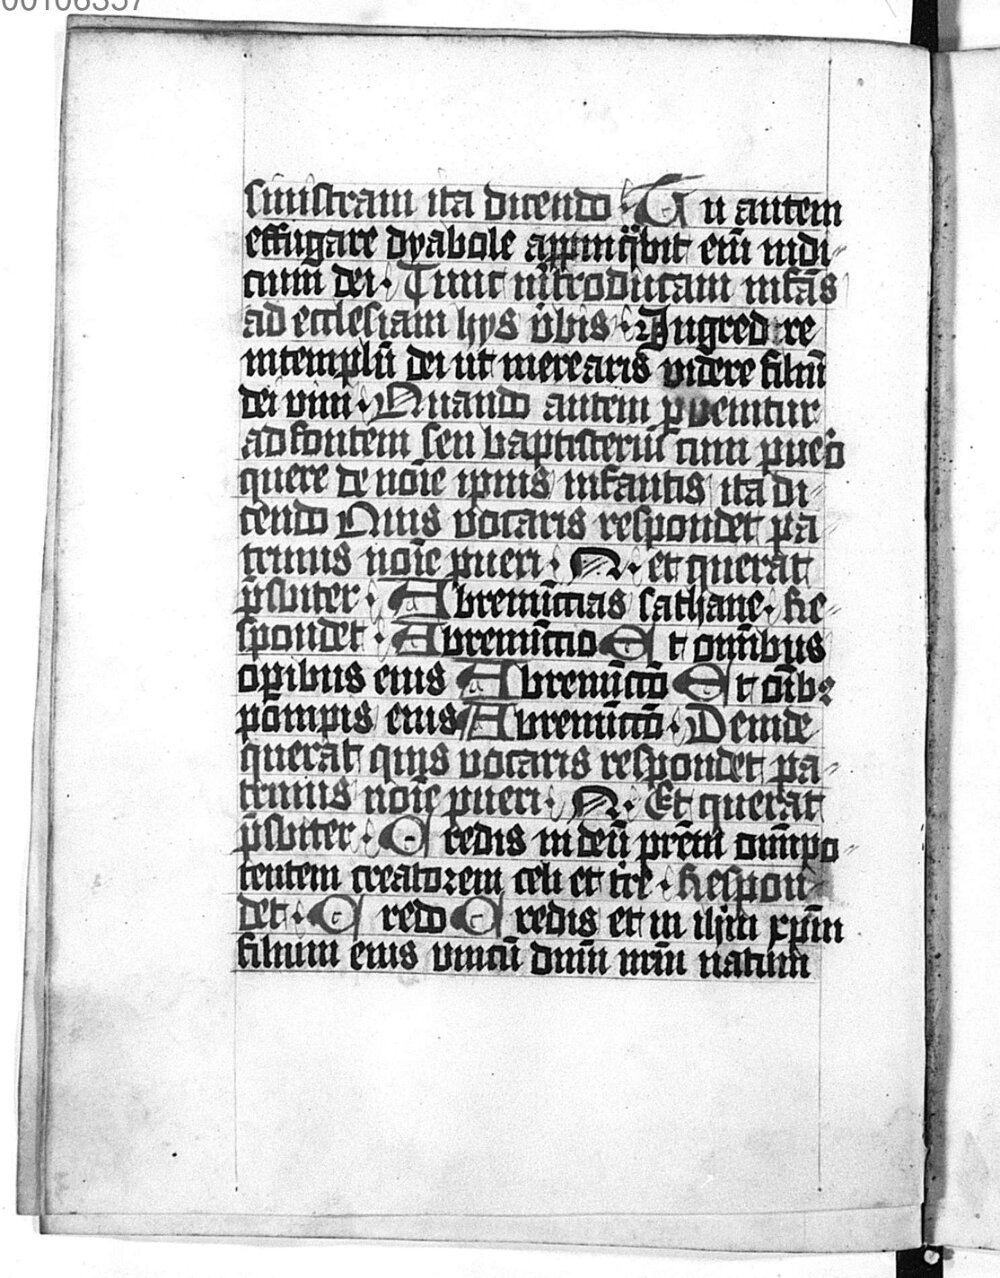 00106357
sinistram ita dicendo · Tu autem
effugare dyabole appinq̈bit em̄ iudi⸗
cium dei · Tunc introducam infãs
ad ecclesiam hijs v̈bis · Ingredere
intemplū dei ut merearis videre filiū
dei viui · Quando autem ꝑuenitur
ad fontem seu baptisteriū cum pueō
quere de noīe ipius infantis ita di⸗
cendo Quis vocaris respondet pa⸗
trinus noīe pueri · N · et querat
p̄sbiter · Abrenūctias sathane · Re⸗
spondet · Abrenūctio Et om̄ibus
opibus eius Abrenūctō Et oībꝫ
pōmpis eius Abrenūctō · Deinde
querat quis vocaris respondet pa⸗
trinus noīe pueri · N · Et querat
p̄sbiter · Credis in deū prēm om̄ipo⸗
tentem creatorem celi et trē · Respon⸗
det · Credo Credis et in ihm̄ xpm̄
filium eius vnicū dnm̄ nrm̄ natum